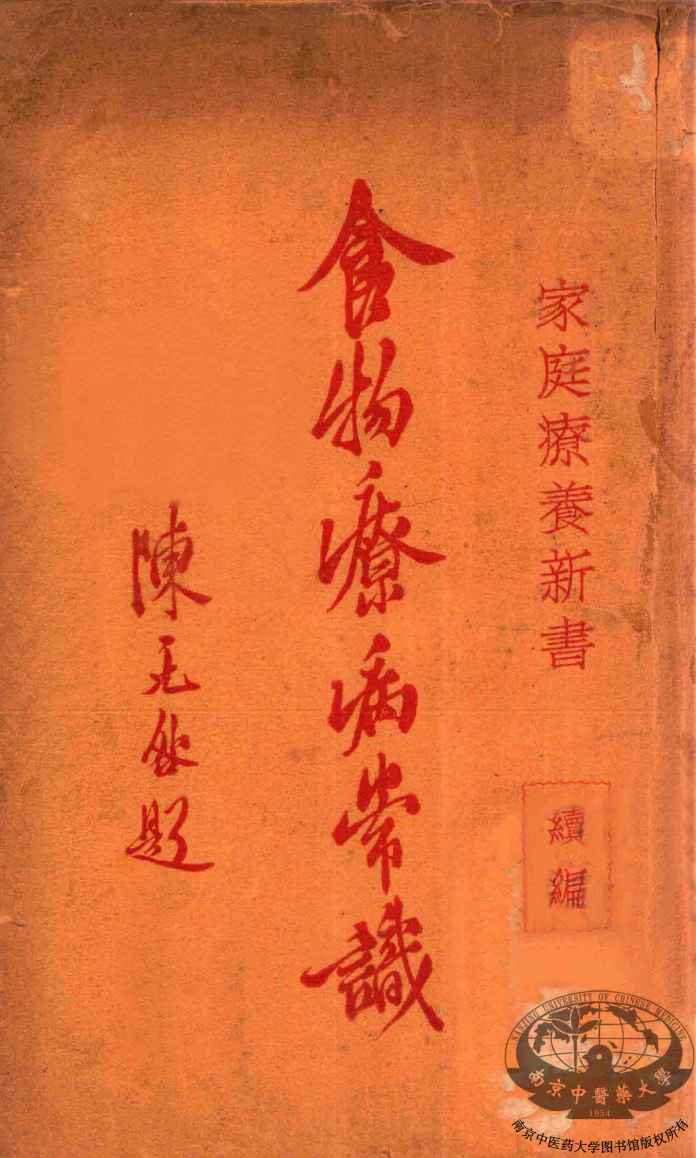 家庭療養新書
續編
食物療病常識
陳无咎題
NANJING UNIVERSITY OF CHINESE MEDICINE
南京中醫藥大學
1954
南京中医药大学图书馆版权所有